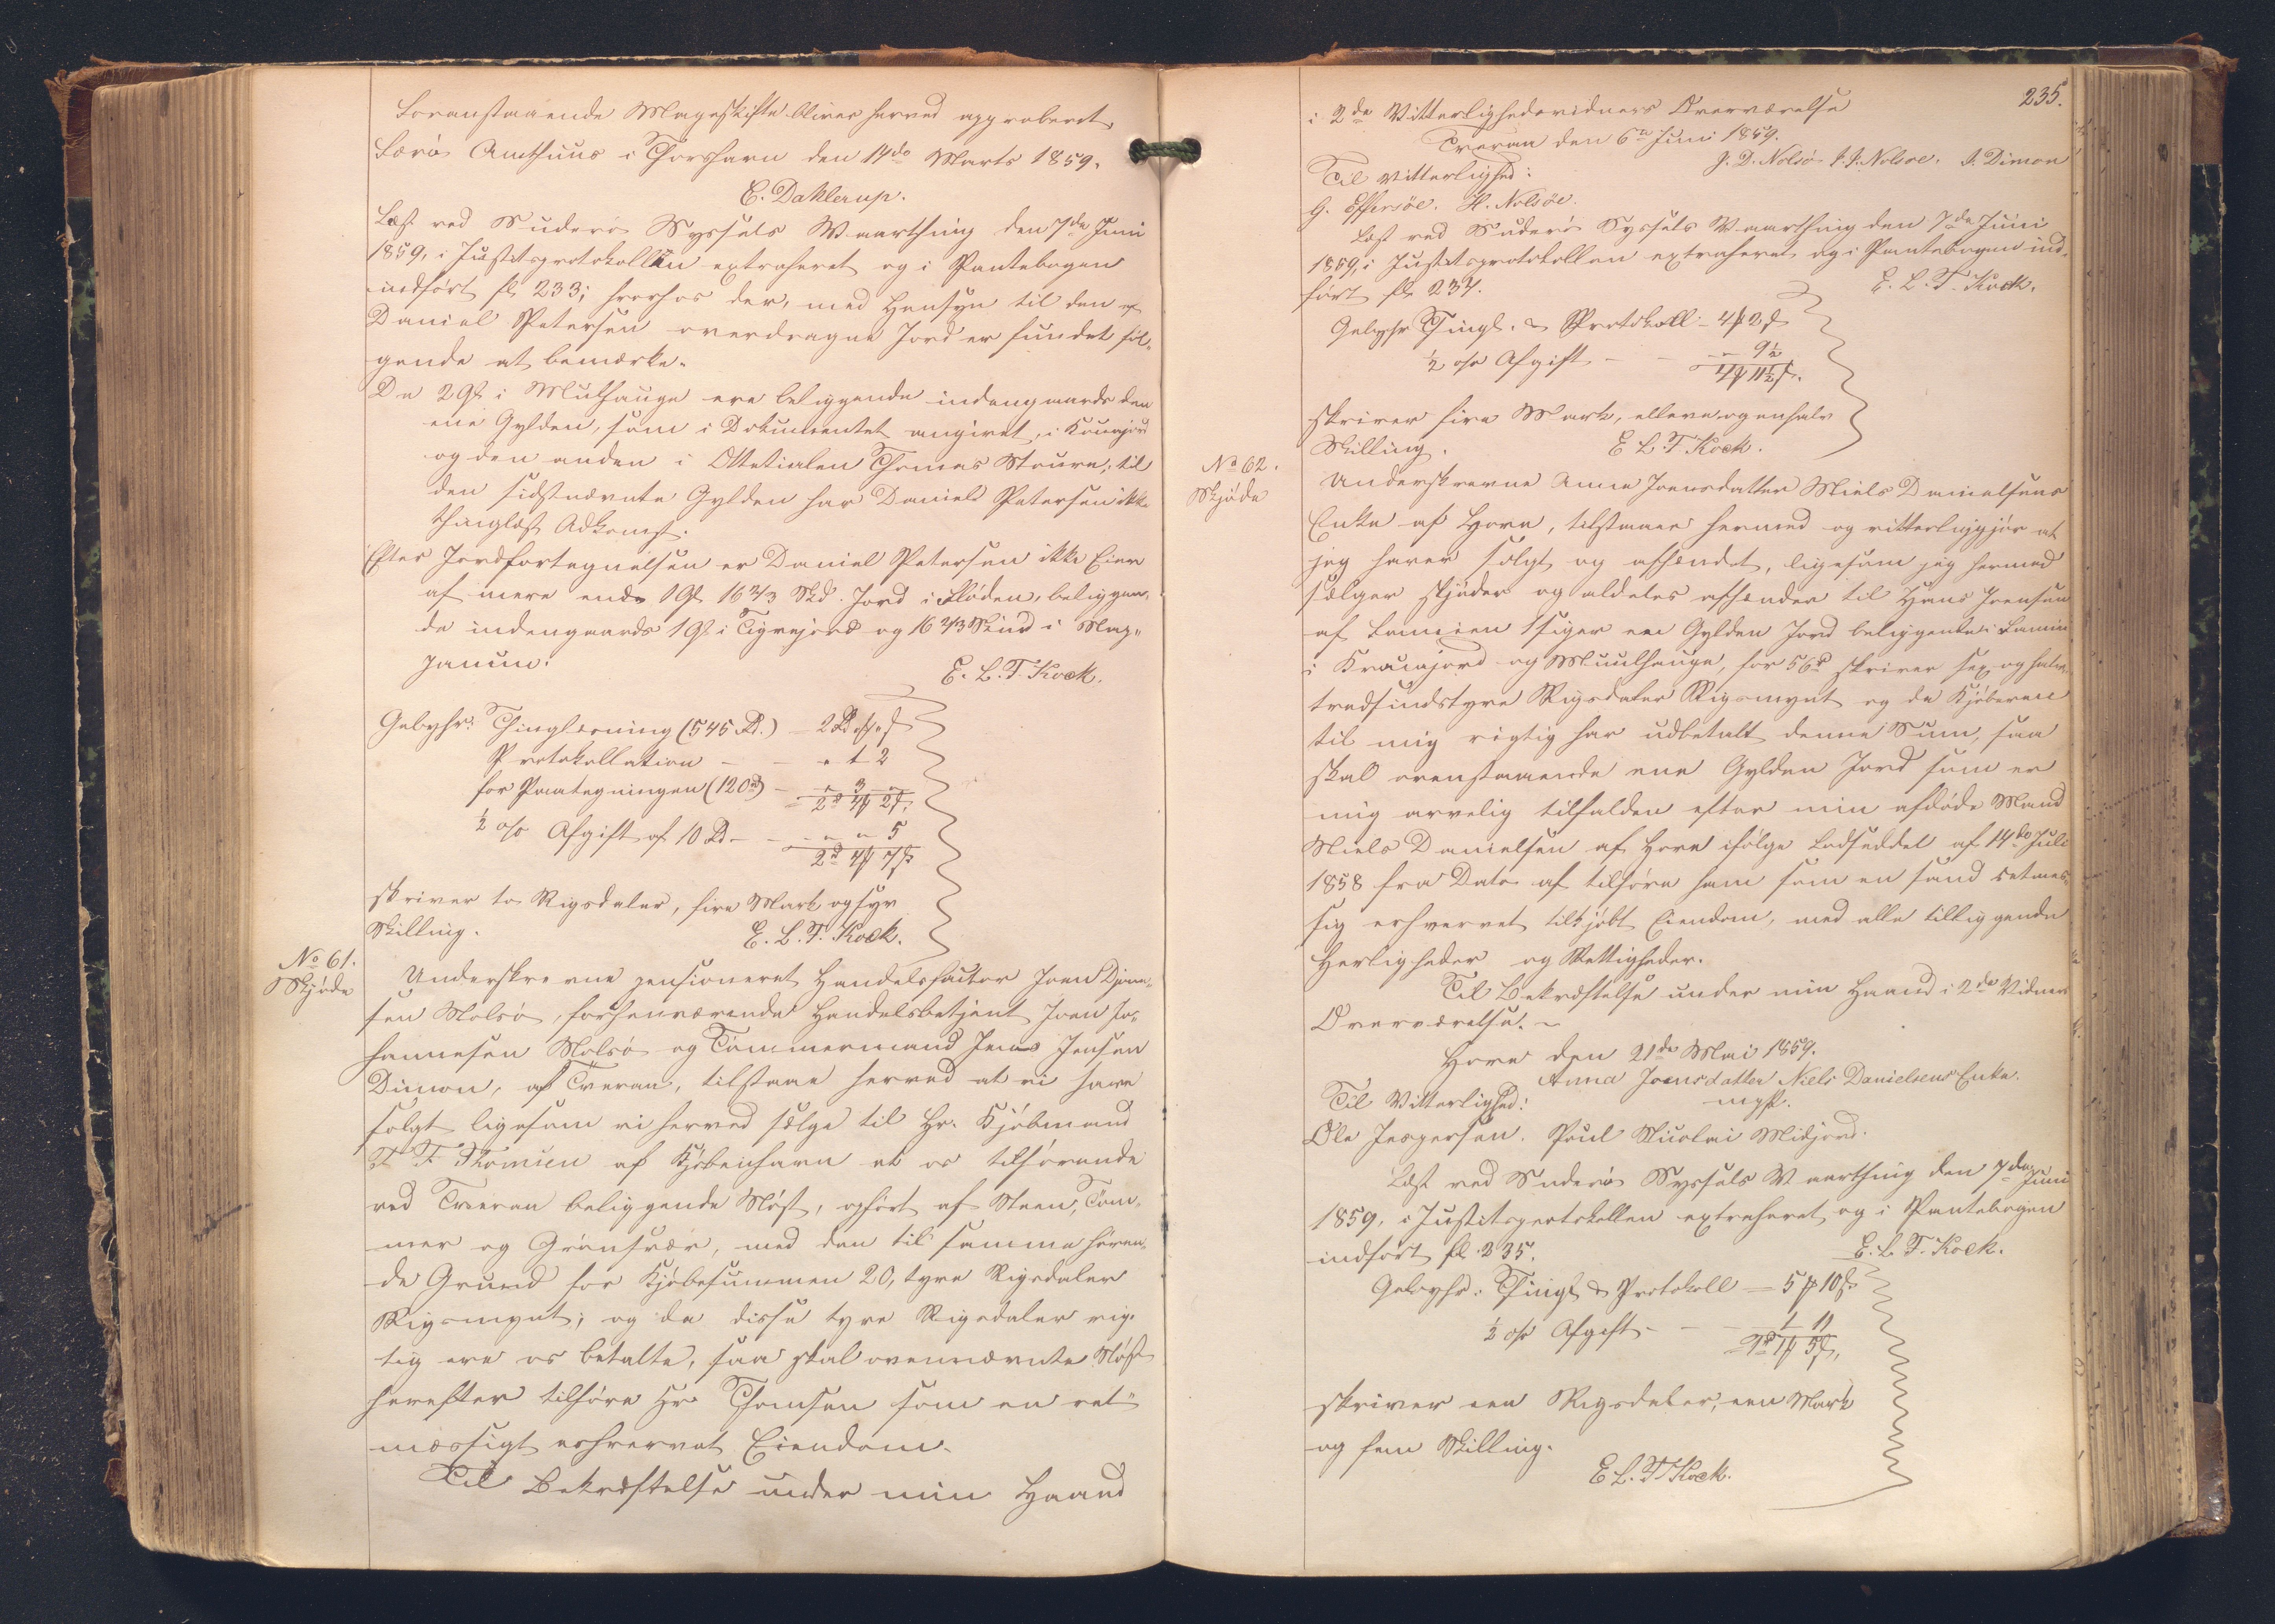 Foranstaaende Mageskifte bliver herved approberet.
Færø Amthuus i Thorshavn den 14de Marts 1859.
C. Dahlerup.
Læst ved Suderø Syssels Vaarthing den 7de Juni
1859, i Justitsprotokollen extraheret og i Pantebogen
indført fol. 233; hvorhos der, med Hensyn til den af
Daniel Petersen overdragne Jord er fundet føl-
gende at bemærke.
De 2 Gl. i Mulhauge ere beliggende indengaards den
ene Gylden, som i Dokumentet angivet, i Kraajord
og den anden i Thomas Stovre, til
den sidstnævnte Gylden har Daniel Petersen ikke
thinglæst Adkomst.
Efter Jordfortegnelsen er Daniel Petersen ikke Eier
af mere end 1 Gl 16 2/3 Skd. Jord i Fløden, beliggen-
de indengaards 1 Gl. i Tignejord og 16 2/3 Skind i

E. L. T. Kock.
Gebyhr: Thinglæsning (545 Rd.) — 2 Rd
Protokollation — — " 1 2
for Paategningen (120 Rd) — " 3 "
2 rd 4 ₻ 2 ß.
½ o/o Afgift af 10 Rd — — " " 5
2 rd 4 ₻ 7 ß
skriver to Rigsdaler, fire Mark og syv
Skilling.
E. L. T. Kock.
No 61.
Skjøde
Underskrevne pensioneret Handelsfactor Joen Djone-
sen Nolsø, forhenværende Handelsbetjent Joen Jo-
hannesen Nolsø og Tømmermand Jens Jensen
Dimon, af Tveraa, tilstaae herved at vi have
solgt ligesom vi herved sælge til Hr. Kjøbmand
F. F. Thomsen af Kjøbenhavn et os tilhørende
ved Tveraa beliggende Nøst, opført af Steen, Tøm-
mer og Grønsvær, med den til samme høren-
de Grund for Kjøbesummen 20, tyve Rigsdaler
Rigsmynt; og da disse tyve Rigsdaler rig-
tig ere os betalte, saa skal ovennævnte Nøst
herefter tilhøre Hr Thomsen som en ret-
mæssigt erhvervet Eiendom.
Til Bekræftelse under min Haand
235.
i 2de Vitterlighedsvidners Overværelse
Tveraa den 6te Juni 1859.
J. D. Nolsø J. J. Nolsøe. J. Dimon
Til Vitterlighed:
G. Effersøe. H. Nolsøe.
Læst ved Suderø Syssels Vaarthing den 7de Juni
1859, i Justitsprotokollen extraheret og i Pantebogen ind-
ført fol. 234.
E. L. T. Kock.
Gebyhr Thingl. & Protokoll: — 4 ₻ 2 ß
½ o/o Afgift — — — 9½
4 ₻ 11½ ß.
skriver fire Mark, elleve og en halv
Skilling.
E. L. T. Kock.
No 62.
Skjøde
Underskrevne Anna Joensdatter Niels Danielsens
Enke af Hove, tilstaaer hermed og vitterliggjør at
jeg haver solgt og afhændet, ligesom jeg hermed
sælger skjøder og aldeles afhænder til Hans Joensen
af Famien 1 siger een Gylden Jord beliggende i Famien
i Kraaajord og Muulhauge, for 56 rd skriver sex og halv-
tredsindstyve Rigsdaler Rigsmynt og da Kjøberen
til mig rigtig har udbetalt denne Sum, saa
skal ovenstaaende ene Gylden Jord som er
mig arvelig tilfalden efter min afdøde Mand
Niels Danielsen af Hove ifølge Lodseddel af 14de Juli
1858 fra Dato af tilhøre ham som en sand retmæs-
sig erhvervet tilkjøbt Eiendom, med alle tilliggende
Herligheder og Rettigheder.
Til Bekræftelse under min Haand i 2de Vidners
Overværelse. ~
Hove den 21de Mai 1859.
Anna Joensdatter Niels Danielsens Enke.
Til Vitterlighed:
mfP.
Ole Jespersen. Poul Nicolai Midjord.
Læst ved Suderø Syssels Vaarthing den 7de Juni
1859, i Justitsprotokollen extraheret og i Pantebogen
indført fol. 235.
E. L. T. Kock.
Gebyhr: Thingl & Protokoll — 5 ₻ 10 ß
½ o/o Afgift — — — 1 11
1 rd 1 ₻ 5 ß.
skriver een Rigsdaler, een Mark
og fem Skilling.
E L. T Kock.